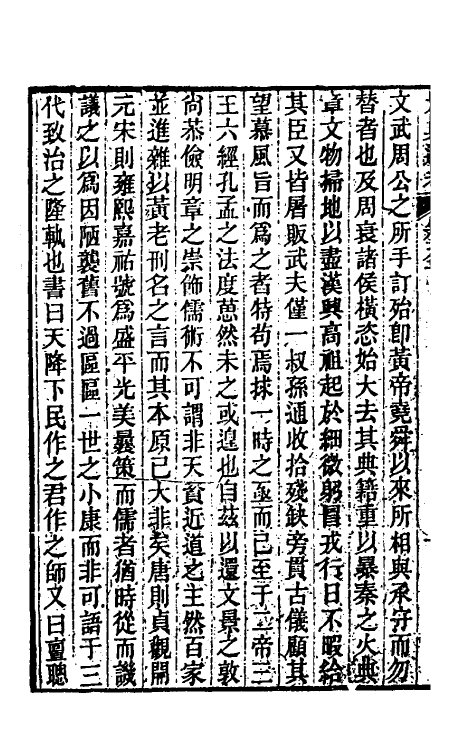 文武周公之所手訂殆卽黃帝堯舜以來所相與承守而勿
替者也及周衰諸侯橫恣始大去其典籍重以暴秦之火典
章文物掃地以盡漢興高祖起於細微躬冒戎行日不暇給
其臣又皆屠販武夫僅一叔孫通收拾殘缺旁貫古儀顧其
望慕風旨而爲之者特苟焉捄一時之亟而已至于二帝三
王六經孔孟之法度蔥然未之或遑也自茲以還文景之敦
尙恭儉明章之崇飾儒術不可謂非天資近道之主然百家
並進雜以黃老刑名之言而其本原已大非矣唐則貞觀開
元宋則雍熙嘉祐號爲盛平光美曩策而儒者猶時從而譏
議之以爲因陋襲舊不過區區一世之小康而非可語于三
代致治之隆軌也書曰天降下民作之君作之師又曰亶聰